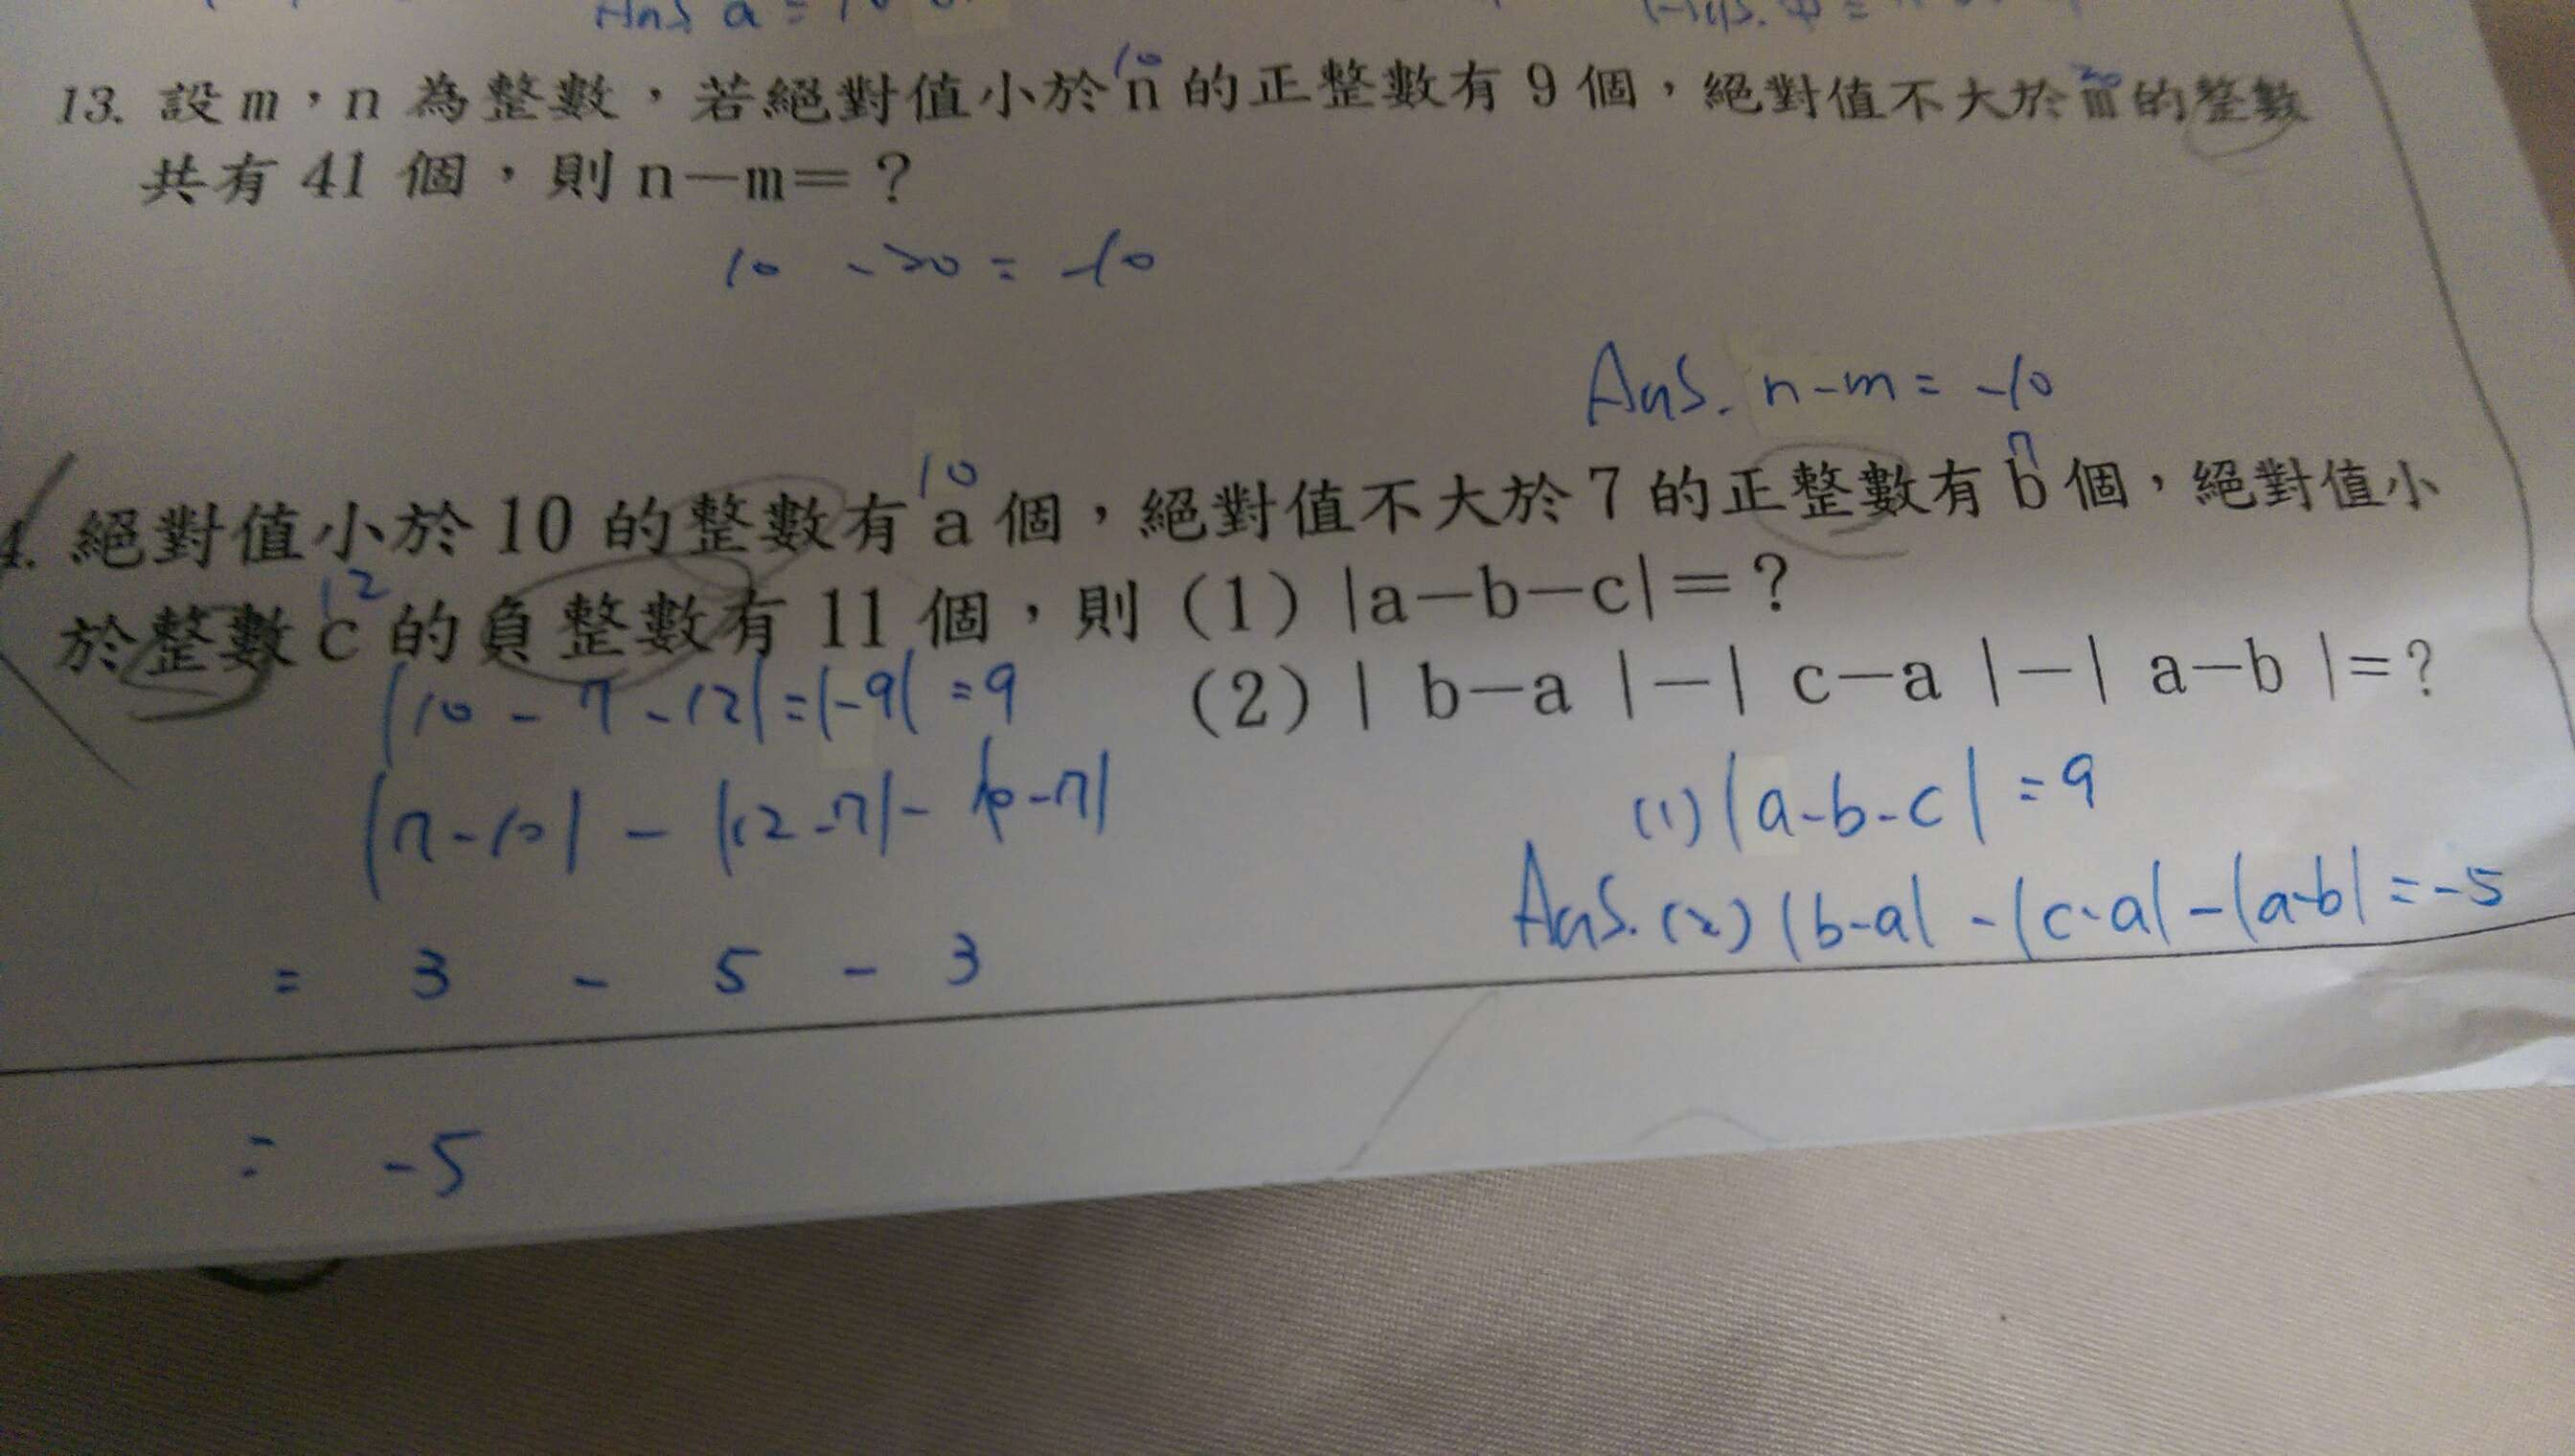 Ans a = 10
13. 設m，n 為整數，若絕對值小於n 的正整數有 9 個，絕對值不大於m的整數
10
20
共有 41 個，則 n－m＝？
10 - 20 = -10
Ans. n-m = -10
10
7
4. 絕對值小於 10 的整數有 a 個，絕對值不大於 7 的正整數有 b 個，絕對值小
12
於整數 c 的負整數有 11 個，則 (1) |a－b－c|＝？
|10 - 7 - 12| = |-9| = 9
(2) | b－a |－| c－a |－| a－b |＝?
|7-10| - |12-7| - |10-7|
(1) |a-b-c| = 9
Ans. (2) |b-a| - |c-a| - |a-b| = -5
= 3 - 5 - 3
= -5